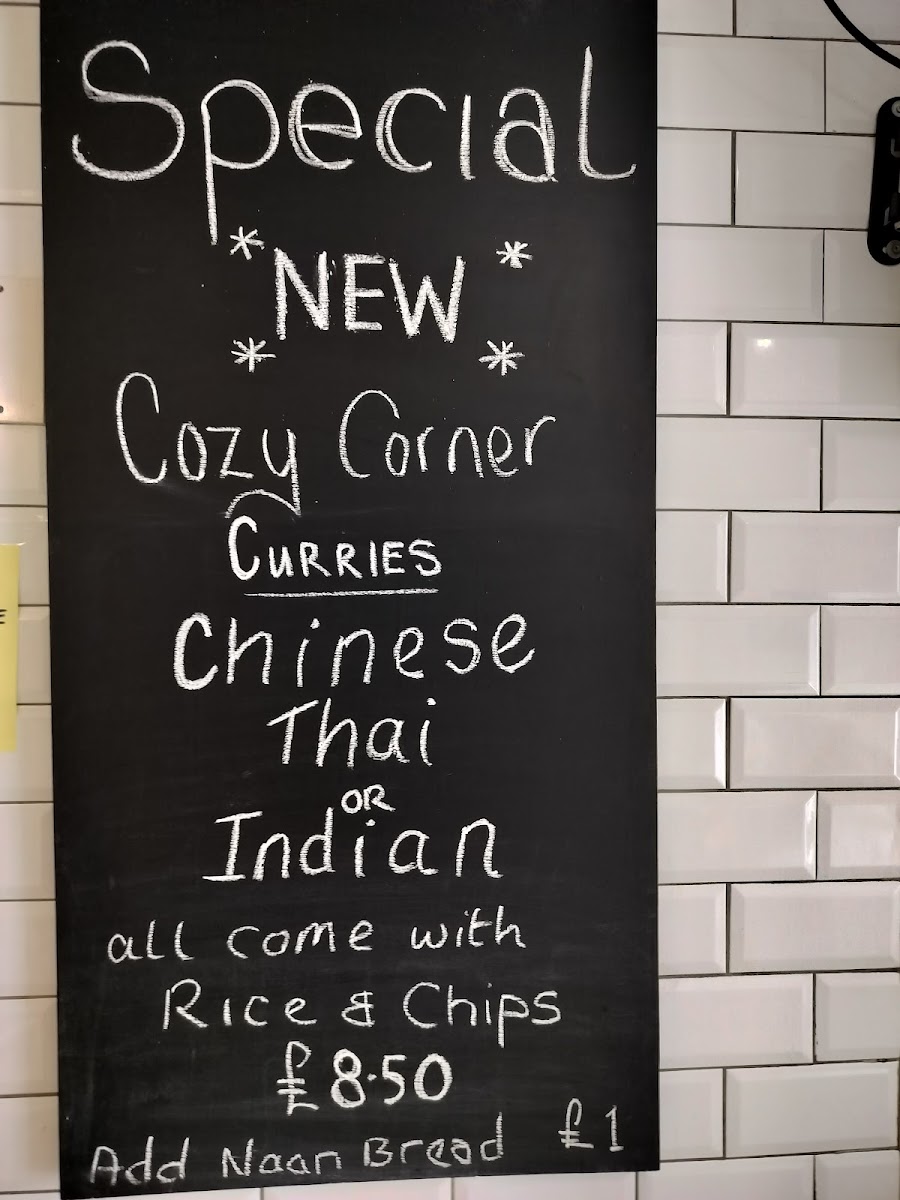 Special
* NEW *
* *
Cozy Corner
CURRIES
Chinese
Thai
OR
Indian
all come with
Rice & Chips
£8.50
Add Naan Bread £1
E